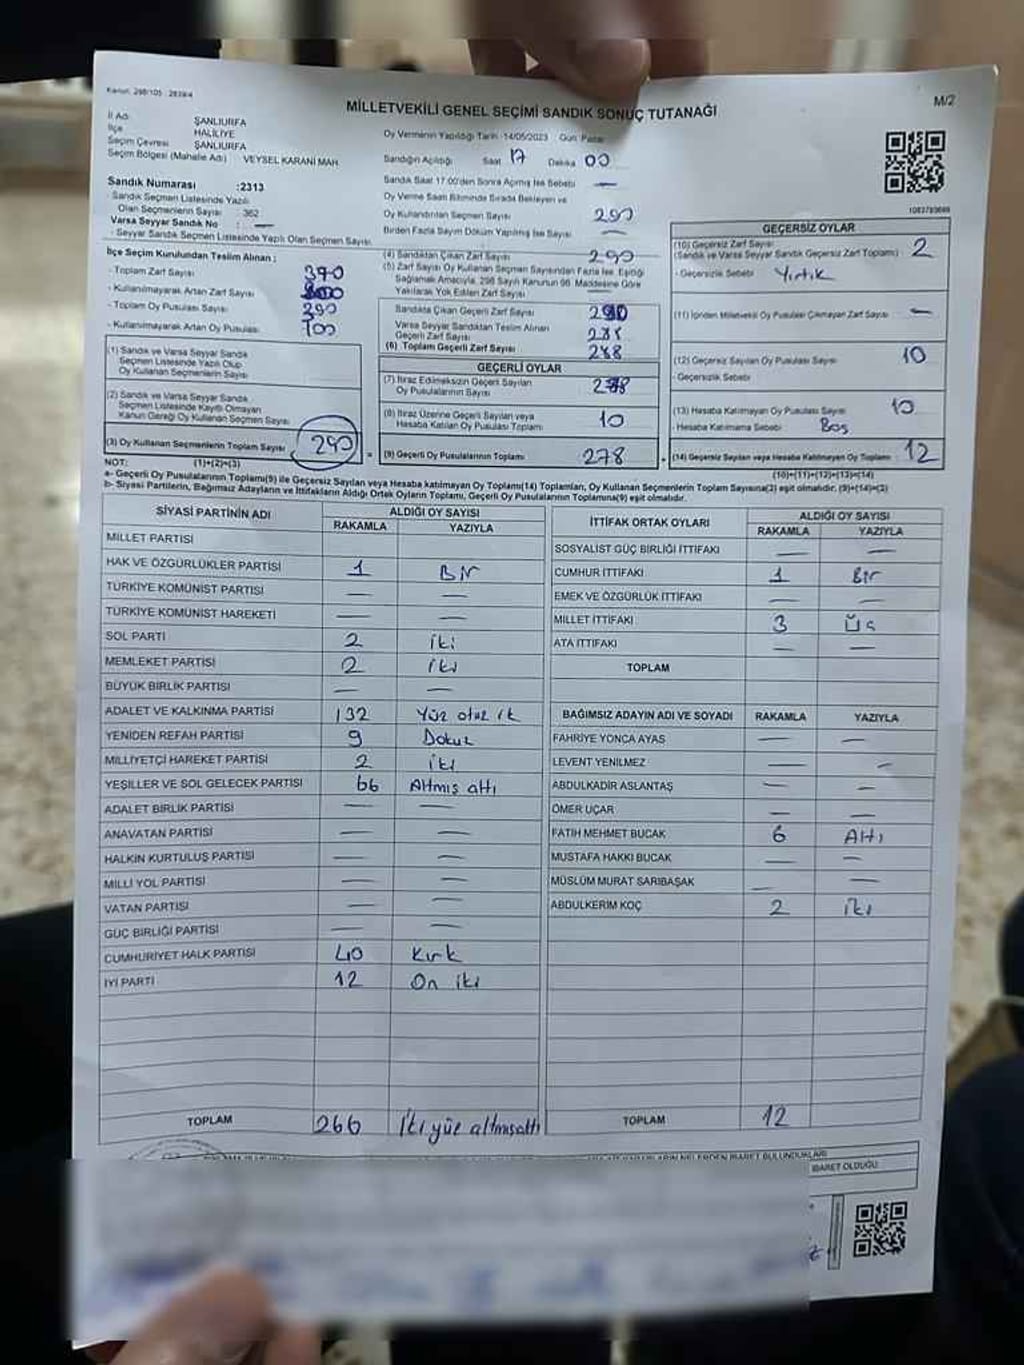 Kanun: 298/105 : 2839/4
M/2
MİLLETVEKİLİ GENEL SEÇİMİ SANDIK SONUÇ TUTANAĞI
İl Adı ŞANLIURFA
İlçe HALİLİYE
Seçim Çevresi ŞANLIURFA
Seçim Bölgesi (Mahalle Adı) VEYSEL KARANİ MAH.
Sandık Numarası :2313
- Sandık Seçmen Listesinde Yazılı
Olan Seçmenlerin Sayısı : 362
Varsa Seyyar Sandık No : —
- Seyyar Sandık Seçmen Listesinde Yazılı Olan Seçmen Sayısı:
Oy Vermenin Yapıldığı Tarih :14/05/2023 Gün: Pazar
Sandığın Açıldığı Saat 17 Dakika 00
Sandık Saat 17.00'den Sonra Açılmış İse Sebebi —
Oy Verme Saati Bitiminde Sırada Bekleyen ve
Oy Kullandırılan Seçmen Sayısı 290
Birden Fazla Sayım Döküm Yapılmış İse Sayısı —
İlçe Seçim Kurulundan Teslim Alınan :
- Toplam Zarf Sayısı 390
- Kullanılmayarak Artan Zarf Sayısı
- Toplam Oy Pusulası Sayısı 390
- Kullanılmayarak Artan Oy Pusulası: 100
(1) Sandık ve Varsa Seyyar Sandık
Seçmen Listesinde Yazılı Olup
Oy Kullanan Seçmenlerin Sayısı
(2) Sandık ve Varsa Seyyar Sandık
Seçmen Listesinde Kayıtlı Olmayan
Kanun Gereği Oy Kullanan Seçmen Sayısı
(3) Oy Kullanan Seçmenlerin Toplam Sayısı 290
(1)+(2)=(3)
(4) Sandıktan Çıkan Zarf Sayısı 290
(5) Zarf Sayısı Oy Kullanan Seçmen Sayısından Fazla İse, Eşitliği
Sağlamak Amacıyla, 298 Sayılı Kanunun 98. Maddesine Göre
Yakılarak Yok Edilen Zarf Sayısı —
Sandıkta Çıkan Geçerli Zarf Sayısı
Varsa Seyyar Sandıktan Teslim Alınan
Geçerli Zarf Sayısı 288
(6) Toplam Geçerli Zarf Sayısı 288
GEÇERLİ OYLAR
(7) İtiraz Edilmeksizin Geçerli Sayılan
Oy Pusulalarının Sayısı
(8) İtiraz Üzerine Geçerli Sayılan veya
Hesaba Katılan Oy Pusulası Toplamı 10
(9) Geçerli Oy Pusulalarının Toplamı 278
GEÇERSİZ OYLAR
(10) Geçersiz Zarf Sayısı
(Sandık ve Varsa Seyyar Sandık Geçersiz Zarf Toplamı) 2
- Geçersizlik Sebebi Yırtık
(11) İçinden Milletvekili Oy Pusulası Çıkmayan Zarf Sayısı —
(12) Geçersiz Sayılan Oy Pusulası Sayısı 10
- Geçersizlik Sebebi
(13) Hesaba Katılmayan Oy Pusulası Sayısı 10
- Hesaba Katılmama Sebebi Boş
(14) Geçersiz Sayılan veya Hesaba Katılmayan Oy Toplamı 12
(10)+(11)+(12)+(13)=(14)
NOT:
a- Geçerli Oy Pusulalarının Toplamı(9) ile Geçersiz Sayılan veya Hesaba katılmayan Oy Toplamı(14) Toplamları, Oy Kullanan Seçmenlerin Toplam Sayısına(3) eşit olmalıdır. (9)+(14)=(3)
b- Siyasi Partilerin, Bağımsız Adayların ve İttifakların Aldığı Ortak Oyların Toplamı, Geçerli Oy Pusulalarının Toplamına(9) eşit olmalıdır.
SİYASİ PARTİNİN ADI ALDIĞI OY SAYISI
RAKAMLA YAZIYLA
MİLLET PARTİSİ
HAK VE ÖZGÜRLÜKLER PARTİSİ 1 Bir
TÜRKİYE KOMÜNİST PARTİSİ — —
TÜRKİYE KOMÜNİST HAREKETİ — —
SOL PARTİ 2 iki
MEMLEKET PARTİSİ 2 iki
BÜYÜK BİRLİK PARTİSİ — —
ADALET VE KALKINMA PARTİSİ 132 Yüz otuz ik
YENİDEN REFAH PARTİSİ 9 Dokuz
MİLLİYETÇİ HAREKET PARTİSİ 2 iki
YEŞİLLER VE SOL GELECEK PARTİSİ 66 Altmış altı
ADALET BİRLİK PARTİSİ — —
ANAVATAN PARTİSİ — —
HALKIN KURTULUŞ PARTİSİ — —
MİLLİ YOL PARTİSİ — —
VATAN PARTİSİ — —
GÜÇ BİRLİĞİ PARTİSİ — —
CUMHURİYET HALK PARTİSİ 40 Kırk
İYİ PARTİ 12 On iki
TOPLAM 266 İki yüz altmışaltı
İTTİFAK ORTAK OYLARI ALDIĞI OY SAYISI
RAKAMLA YAZIYLA
SOSYALİST GÜÇ BİRLİĞİ İTTİFAKI — —
CUMHUR İTTİFAKI 1 Bir
EMEK VE ÖZGÜRLÜK İTTİFAKI — —
MİLLET İTTİFAKI 3 Üç
ATA İTTİFAKI — —
TOPLAM
BAĞIMSIZ ADAYIN ADI VE SOYADI RAKAMLA YAZIYLA
FAHRİYE YONCA AYAS — —
LEVENT YENİLMEZ — —
ABDULKADİR ASLANTAŞ — —
ÖMER UÇAR — —
FATİH MEHMET BUCAK 6 Altı
MUSTAFA HAKKI BUCAK — —
MÜSLÜM MURAT SARIBAŞAK — —
ABDULKERİM KOÇ 2 iki
TOPLAM 12
İBARET OLDUĞU